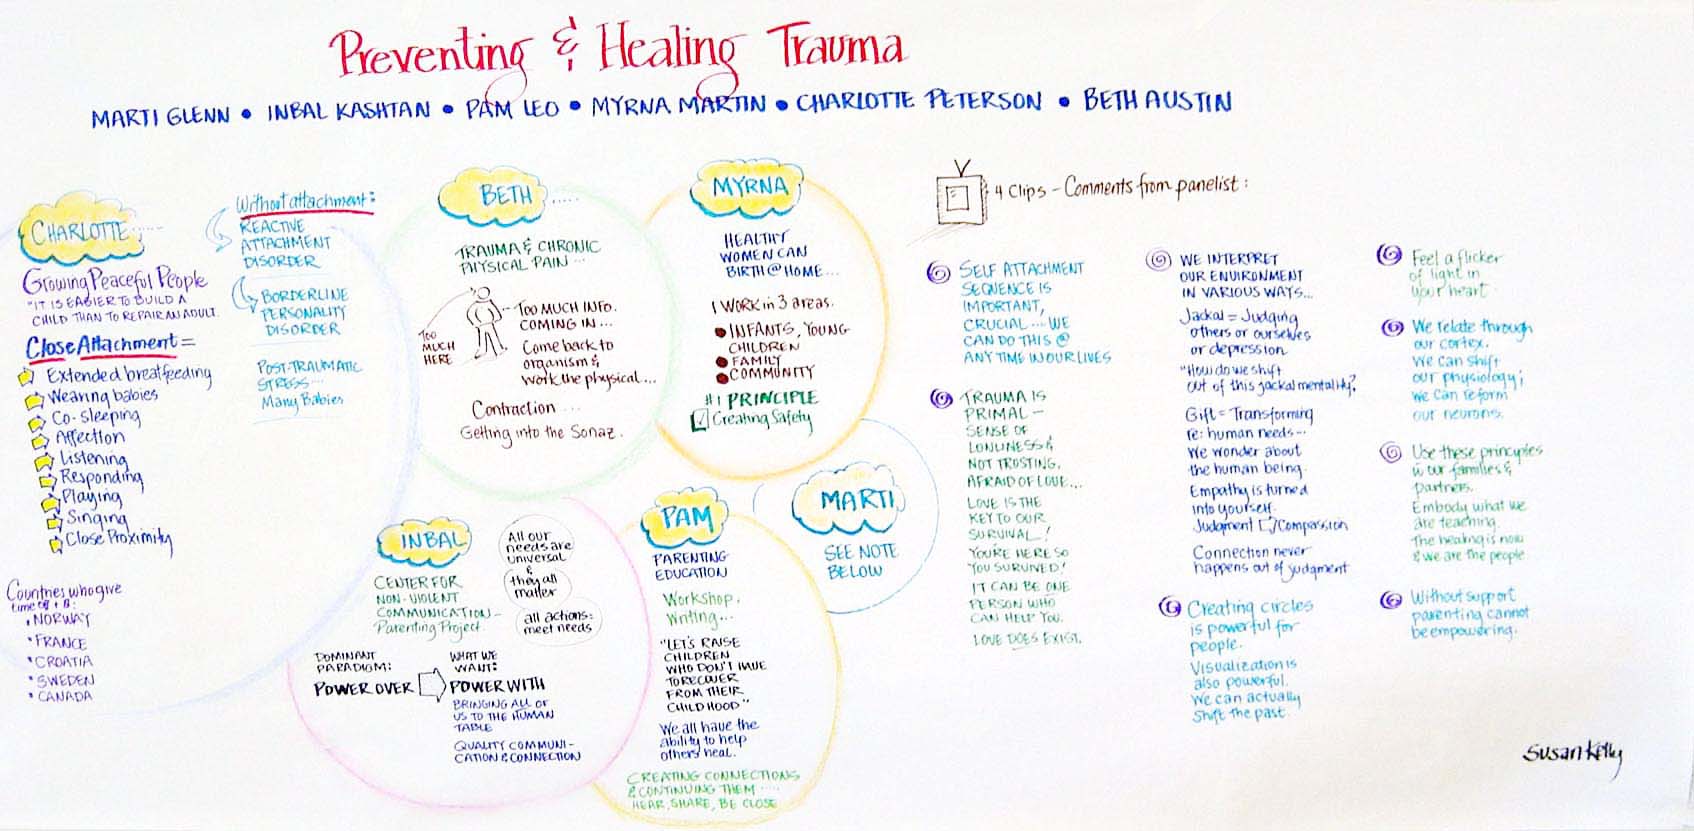 Preventing & Healing Trauma
MARTI GLENN • INBAL KASHTAN • PAM LEO • MYRNA MARTIN • CHARLOTTE PETERSON • BETH AUSTIN
CHARLOTTE......
Growing Peaceful People
"IT IS EASIER TO BUILD A
CHILD THAN TO REPAIR AN ADULT.
Close Attachment =
Extended breatfeeding
Wearing babies
Co-sleeping
Affection
Listening
Responding
Playing
Singing
Close Proximity
Countries who give
time off
NORWAY
• FRANCE
• CROATIA
• SWEDEN
• CANADA
Without attachment:
REACTIVE
ATTACHMENT
DISORDER
BORDERLINE
PERSONALITY
DISORDER
POST-TRAUMATIC
STRESS...
Many Babies
BETH.....
TRAUMA & CHRONIC
PHYSICAL PAIN...
TOO
MUCH
HERE
TOO MUCH INFO.
COMING IN...
Come back to
organism &
work the physical...
Contraction ....
Getting into the Sonaz.
MYRNA
HEALTHY
WOMEN CAN
BIRTH @ HOME...
I WORK in 3 areas.
• INFANTS, YOUNG
CHILDREN
• FAMILY
• COMMUNITY
#1 PRINCIPLE
Creating Safety
INBAL
CENTER FOR
NON-VIOLENT
COMMUNICATION-
Parenting Project
All our
needs are
universal
&
they all
matter
all actions:
meet needs
DOMINANT
PARADIGM:
POWER OVER
WHAT WE
WANT:
POWER WITH
BRINGING ALL OF
US TO THE HUMAN
TABLE
QUALITY COMMUNI-
CATION & CONNECTION
PAM
PARENTING
EDUCATION
Workshop,
Writing...
"LET'S RAISE
CHILDREN
WHO DON'T HAVE
TO RECOVER
FROM THEIR
CHILDHOOD"
We all have the
ability to help
others heal.
CREATING CONNECTIONS
& CONTINUING THEM .....
HEAR, SHARE, BE CLOSE
MARTI
SEE NOTE
BELOW
4 Clips - Comments from panelist:
SELF ATTACHMENT
SEQUENCE IS
IMPORTANT,
CRUCIAL .... WE
CAN DO THIS @
ANY TIME IN OUR LIVES
TRAUMA IS
PRIMAL -
SENSE OF
LONLINESS &
NOT TRUSTING,
AFRAID OF LOVE...
LOVE IS THE
KEY TO OUR
SURVIVAL!
YOU'RE HERE SO
YOU SURVIVED!
IT CAN BE ONE
PERSON WHO
CAN HELP YOU.
LOVE DOES EXIST.
WE INTERPRET
OUR ENVIRONMENT
IN VARIOUS WAYS...
Jackal = Judging
others or ourselves
or depression
"How do we shift
out of this jackal mentality?
Gift = Transforming
re: human needs...
We wonder about
the human being.
Empathy is turned
into yourself.
Judgment Compassion
Connection never
happens out of judgment
Creating circles
is powerful for
people.
Visualization is
also powerful.
We can actually
Shift the past.
Feel a flicker
of light in
your heart.
We relate through
our cortex.
We can shift
our physiology;
we can reform
our neurons.
Use these principles
in our families &
partners.
Embody what we
are teaching.
The healing is now
& we are the people
Without support
parenting cannot
be empowering.
Susan Kelly